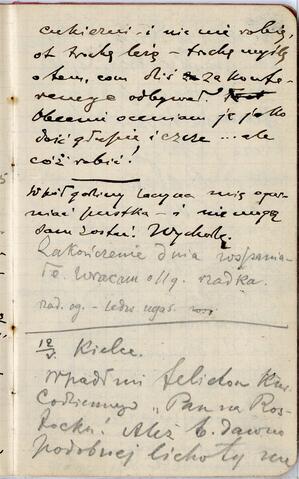 cukierni - i nic nie robię,
ot trochę leżę - trochę myślę
o tem, com dziś za konfe-
rencye odbywał.
Obecnie oceniam je jako
dość głupie i czcze ... ale
cóż robić!
W pół godziny zaczyna mię ogar-
niać pustka - i nie mogę
sam zostać. Wychodzę.
Zakończenie dnia wspania-
łe. Wracam o 11 g.
rad. og. - ledwo
12/V. Kielce.
Wpadł mi felieton Kur.
Codziennego "Pan na Ros-
Ależ b. dawno
podobnej lichoty nie